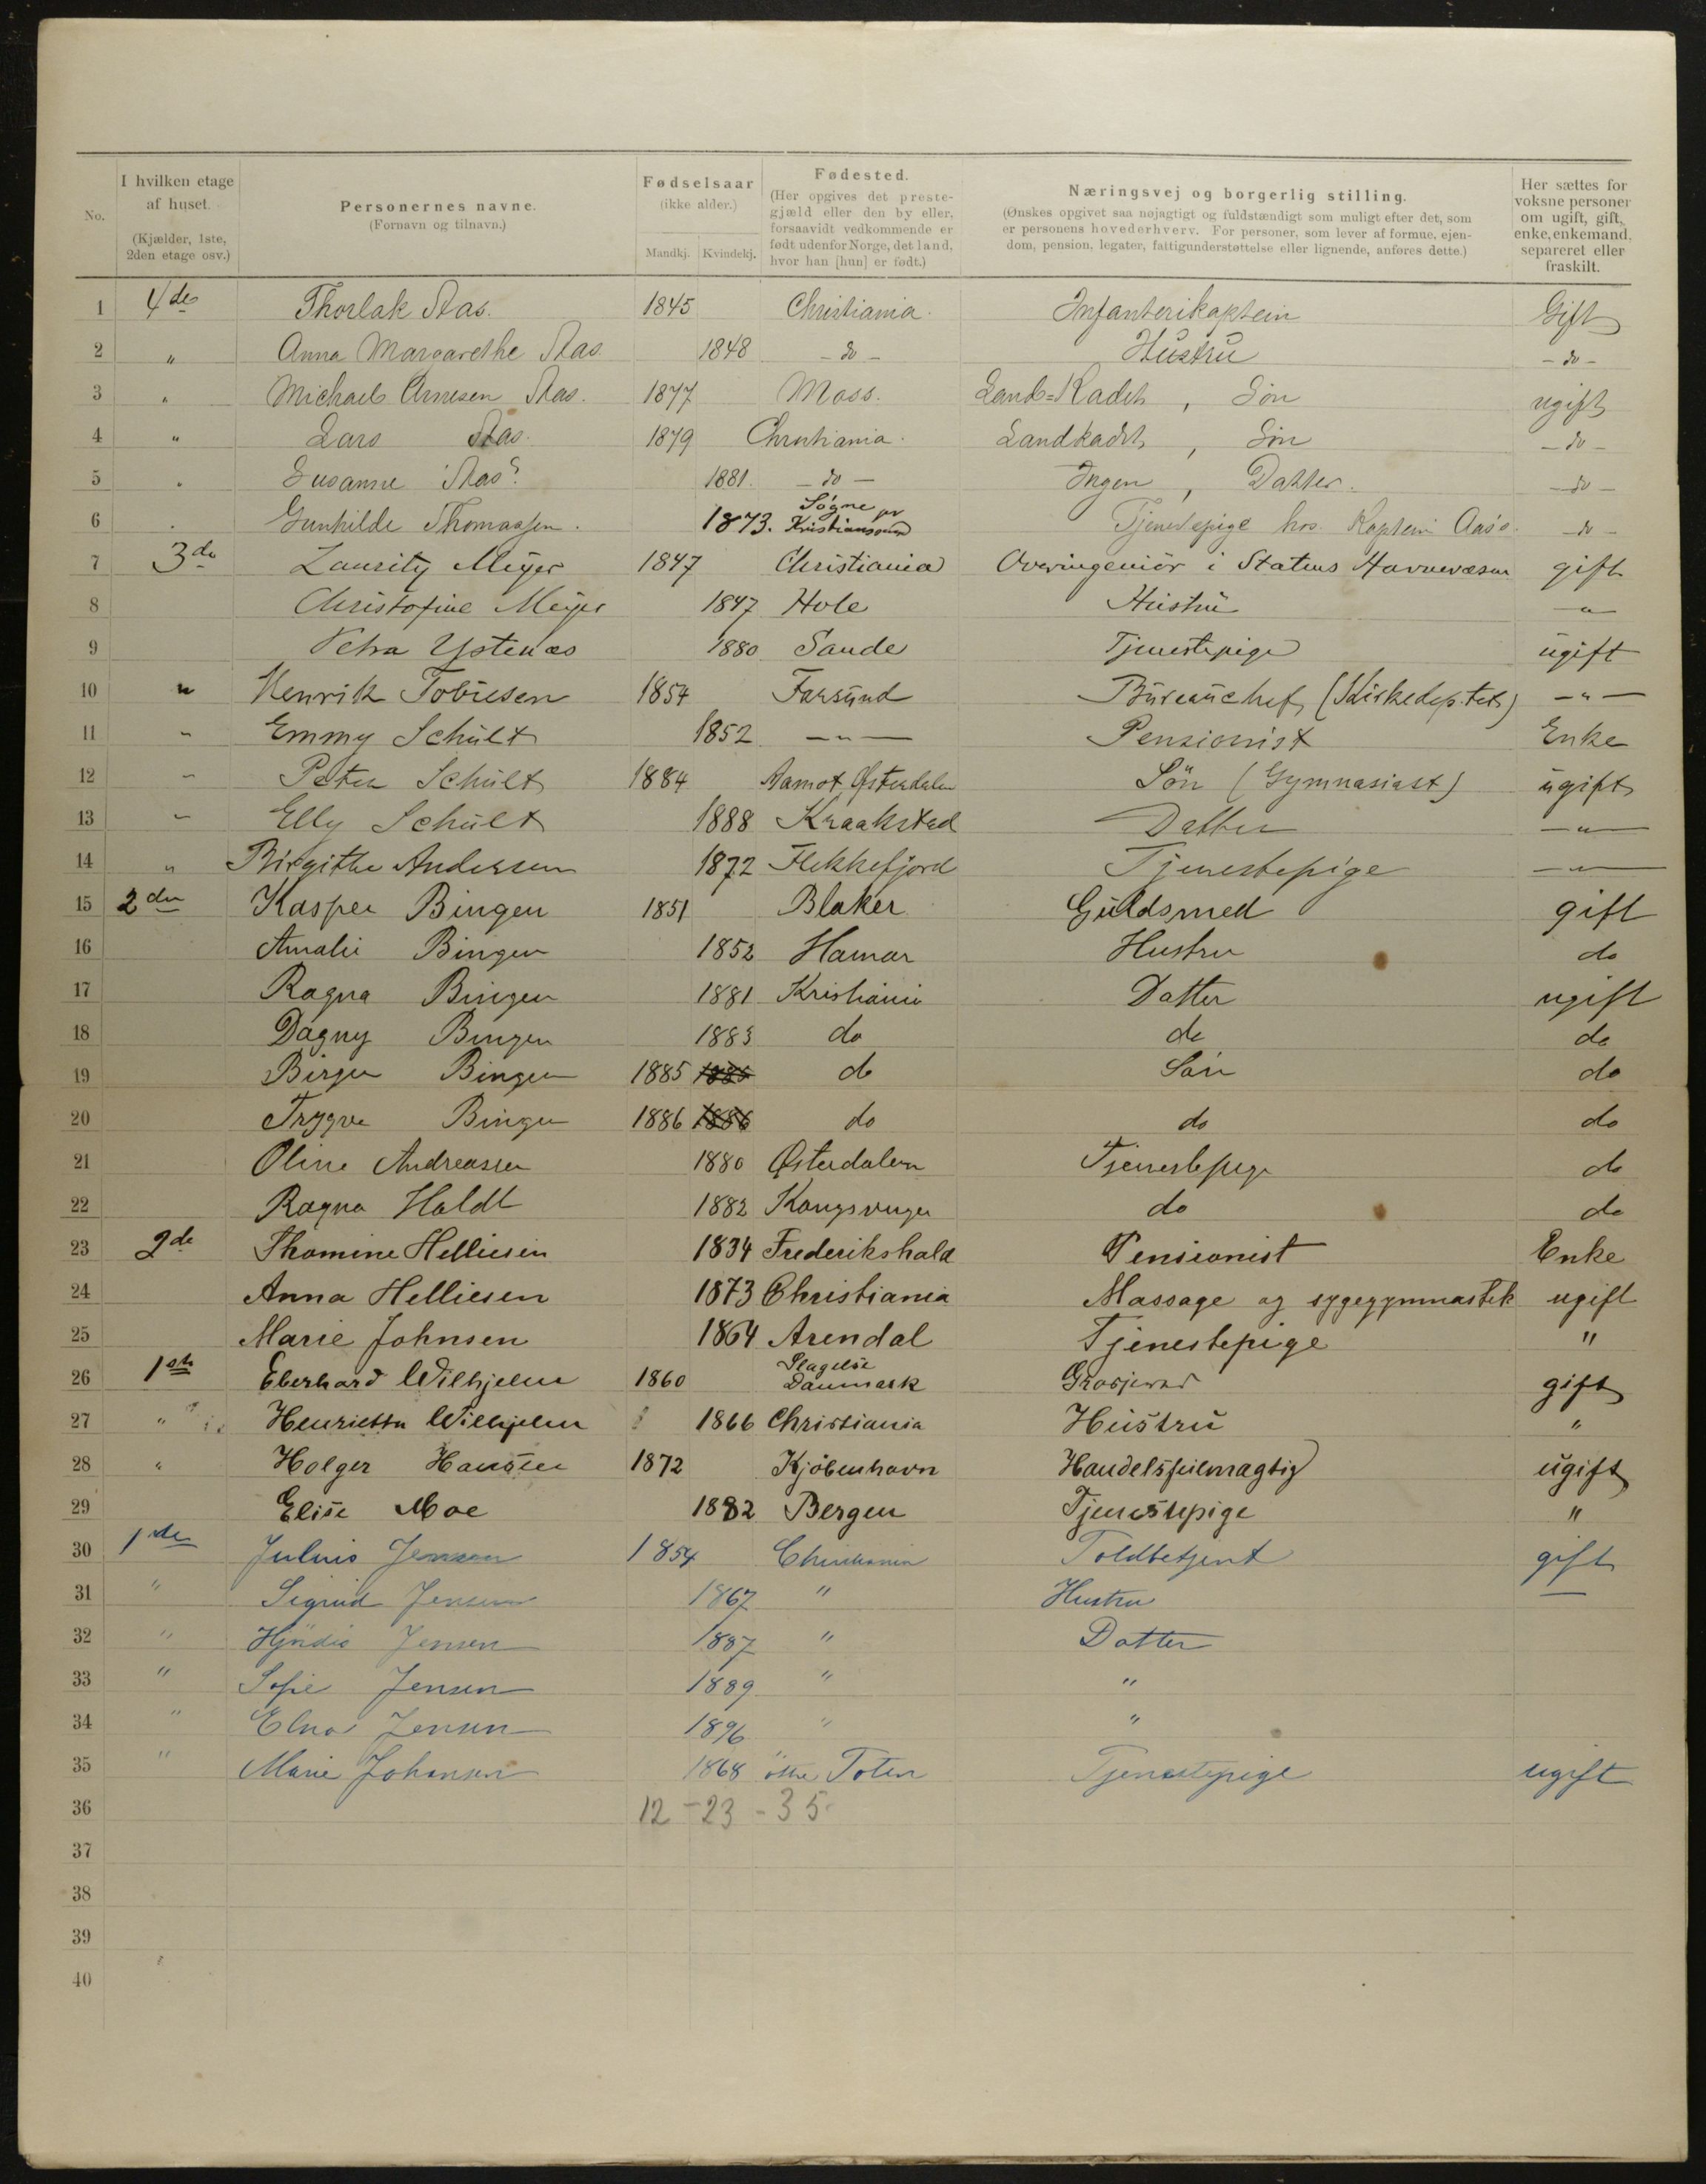 I hvilken etage af huset. (Kjælder, 1ste, 2den etage osv.)
No.
Personernes navne. (Fornavn og tilnavn.)
Fødselsaar (ikke alder.) Mandkj. Kvindekj.
Fødested. (Her opgives det prestegjæld eller den by eller, forsaavidt vedkommende er født udenfor Norge, det land, hvor han [hun] er født.)
Næringsvej og borgerlig stilling. (Ønskes opgivet saa nøjagtigt og fuldstændigt som muligt efter det, som er personens hovederhverv. For personer, som lever af formue, ejendom, pension, legater, fattigunderstøttelse eller lignende, anføres dette.)
Her sættes for voksne personer om ugift, gift, enke, enkemand, separeret eller fraskilt.
1 4de Thorlak Aas. 1845 Christiania. Infanterikaptein Gift
2 " Anna Margarethe Aas. 1848 - do - Hustru - do -
3 " Michael Arnesen Aas. 1877 Moss. Land=Kadet, Søn ugift
4 " Lars Aas. 1879 Christiania. Landkadet, Søn - do -
5 " Susanne Aas. 1881. - do - Ingen, Datter. - do -
6 " Gunhilde Thomassen. 1873. Søgne pr Kristianssand Tjenestepige hos Kaptein Aas's. - do -
7 3de Lauritz Meyer 1847 Christiania Overingeniör i Statens Havnevæsen gift
8 Christofine Meyer 1847 Hole Hustru - " -
9 Petra Ystenæs 1880 Sande Tjenestepige ugift
10 " Henrik Tobiesen 1854 Farsund Bureauchef (Kirkedep.tet) - " -
11 " Emmy Schült 1852 - " - Pensionist Enke
12 " Peter Schült 1884 Aamot Østerdalen Sön (Gymnasiast) ugift
13 " Elly Schült 1888 Kraakstad Datter - " -
14 " Birgithe Andersen 1872 Flekkefjord Tjenestepige - " -
15 2den Kasper Bingen 1851 Blaker Guldsmed gift
16 Amalie Bingen 1852 Hamar Hustru do
17 Ragna Bingen 1881 Kristiania Datter ugift
18 Dagny Bingen 1883 do do do
19 Birger Bingen 1885 1885 do Søn do
20 Trygve Bingen 1886 1886 do do do
21 Oline Andreassen 1880 Østerdalen Tjenestepige do
22 Ragna Holdt 1882 Kongsvinger do do
23 2de Thomine Helliesen 1834 Frederikshald Pensionist Enke
24 Anna Helliesen 1873 Christiania Massage og sygegymnastik ugift
25 Marie Johnsen 1864 Arendal Tjenestepige "
26 1ste Eberhard Wilhjelm 1860 Slagelse Danmark Grosjerer gift
27 " Henrietta Wilhjelm 1866 Christiania Hustru "
28 " Holger Hanssen 1872 Kjöbenhavn Handelsfuldmægtig ugift
29 Elise Moe 1882 Bergen Tjenestepige "
30 1ste Julius Jensen 1854 Christiania Toldbetjent gift
31 " Sigrid Jensen 1867 " Hustru —
32 " Hjördis Jensen 1887 " Datter
33 " Sofie Jensen 1889 " "
34 " Elna Jensen 1896 " "
35 " Marie Johansen 1868 östre Toten Tjenestepige ugift
36 12 - 23 - 35
37
38
39
40